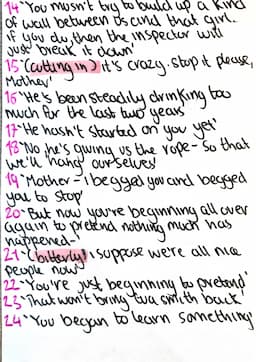 14 'You musn't try to build up a kind
of wall between us and that girl.
if you do, then the inspector will
just break it down'
15 '(cutting in) it's crazy. stop it please,
Mother'
16 'He's been steadily drinking too
much for the last two years'
17 'He hasn't started on you yet'
18 'No he's giving us the rope - so that
we'll hang ourselves'
19 'Mother - I begged you and begged
you to stop'
20 'But now you're beginning all over
again to pretend nothing much has
happened -'
21 '(bitterly) I suppose we're all nice
people now'
22 'You're just beginning to pretend'
23 'That won't bring Eva smith back'
24 'You began to learn something'